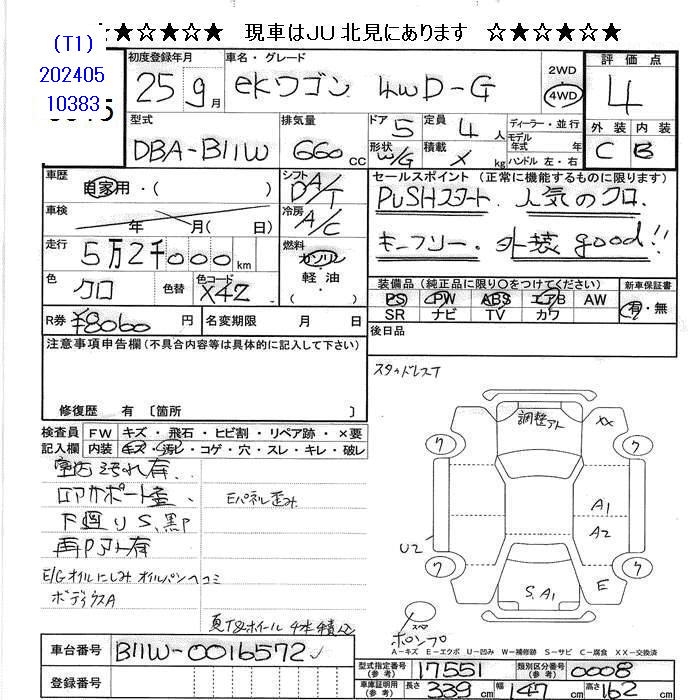 ☆★☆★☆ 現車はJU北見にあります ☆★☆★☆
(T1)
202405
10383
初度登録年月 25 9月
車名・グレード ekワゴン 4WD-G
2WD 4WD
評価点 4
外装 内装
C B
型式 DBA-B11W
排気量 660 cc
ドア 5 定員 4人
形状 W/G 積載 × kg
ディーラー・並行
モデル年式 年式
ハンドル 左・右
車歴 自家用・( )
シフト A/T D/T
車検 年 月( 日)
冷房 A/C
走行 5万2千000 km
燃料 ガソリン 軽油 ・( )
色 クロ 色替 色コード X42
R券 ¥8060 円 名変期限 月 日
セールスポイント (正常に機能するものに限ります)
PUSHスタート. 人気のクロ.
キーフリー. 外装good!!
装備品 (純正品に限り○をつけてください) 新車保証書
PS PW ABS エアB AW 有・無
SR ナビ TV カワ
後日品
スタッドレスT
注意事項申告欄(不具合内容等は具体的に記入して下さい)
修復歴 有 〔箇所 〕
検査員 FW キズ・飛石・ヒビ割・リペア跡・×要
記入欄 内装 キズ・汚レ・コゲ・穴・スレ・キレ・破レ
室内汚れ有.
ロアサポート歪
Eパネル歪み
下廻りS、黒P
再Pアト有
E/Gオイルにじみ オイルパンヘコミ
ボディウスA
夏T&ホイール 4本積込
調整アト XX
ワ ワ
A1
A2
U2
ワ ワ
E
S.A1
スペア
ポンプ
A-キズ E-エクボ U-凹み W-補修跡 S-サビ C-腐食 XX-交換済
車台番号 B11W-0016572
登録番号
型式指定番号(参考) 17551 類別区分番号(参考) 0008
車庫証明用(参考) 長さ 339 cm 幅 147 cm 高さ 162 cm